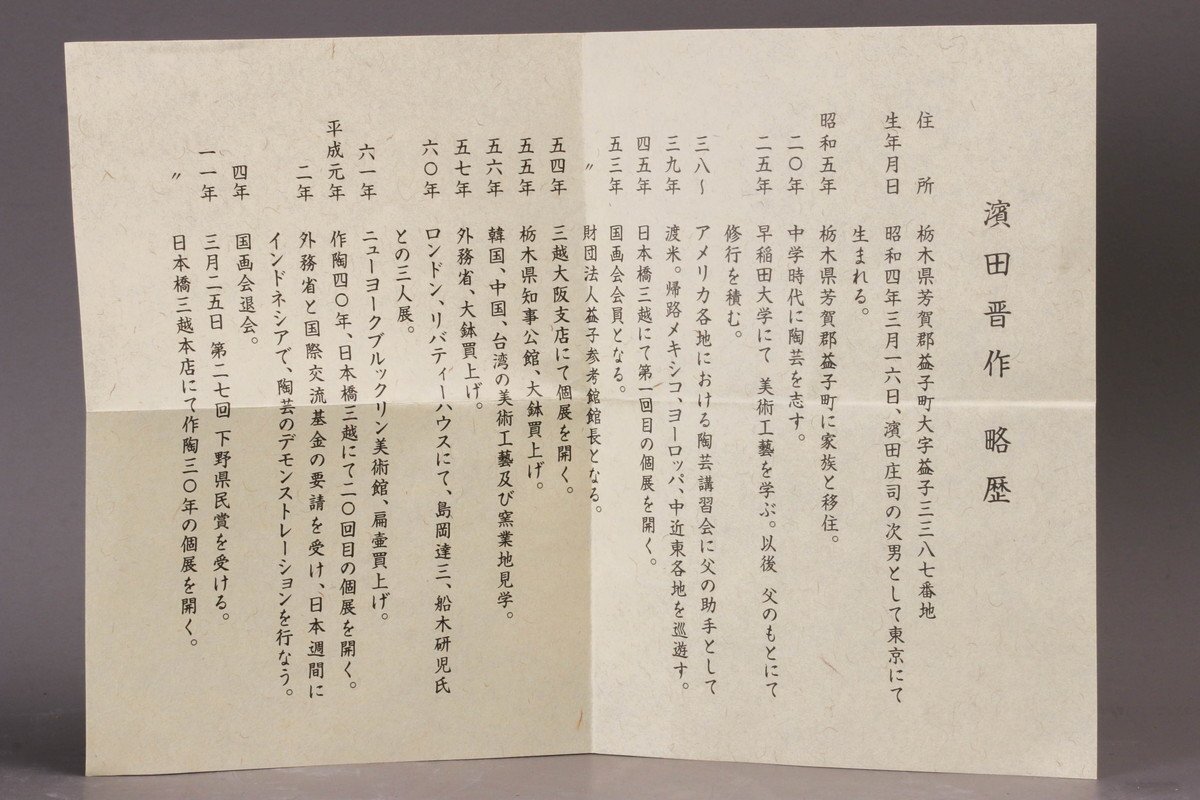 濱田晋作略歴
住所 栃木県芳賀郡益子町大字益子三三八七番地
生年月日 昭和四年三月一六日、濱田庄司の次男として東京にて
生まれる。
昭和五年 栃木県芳賀郡益子町に家族と移住。
二〇年 中学時代に陶芸を志す。
二五年 早稲田大学にて 美術工藝を学ぶ。以後 父のもとにて
修行を積む。
三八〜 アメリカ各地における陶芸講習会に父の助手として
三九年 渡米。帰路メキシコ、ヨーロッパ、中近東各地を巡遊す。
四五年 日本橋三越にて第一回目の個展を開く。
五三年 国画会会員となる。
〃 財団法人益子参考館館長となる。
五四年 三越大阪支店にて個展を開く。
五五年 栃木県知事公館、大鉢買上げ。
五六年 韓国、中国、台湾の美術工藝及び窯業地見学。
五七年 外務省、大鉢買上げ。
六〇年 ロンドン、リバティーハウスにて、島岡達三、船木研児氏
との三人展。
六一年 ニューヨークブルックリン美術館、扁壷買上げ。
平成元年 作陶四〇年、日本橋三越にて二〇回目の個展を開く。
二年 外務省と国際交流基金の要請を受け、日本週間に
インドネシアで、陶芸のデモンストレーションを行なう。
四年 国画会退会。
一一年 三月二五日 第二七回 下野県民賞を受ける。
〃 日本橋三越本店にて作陶三〇年の個展を開く。